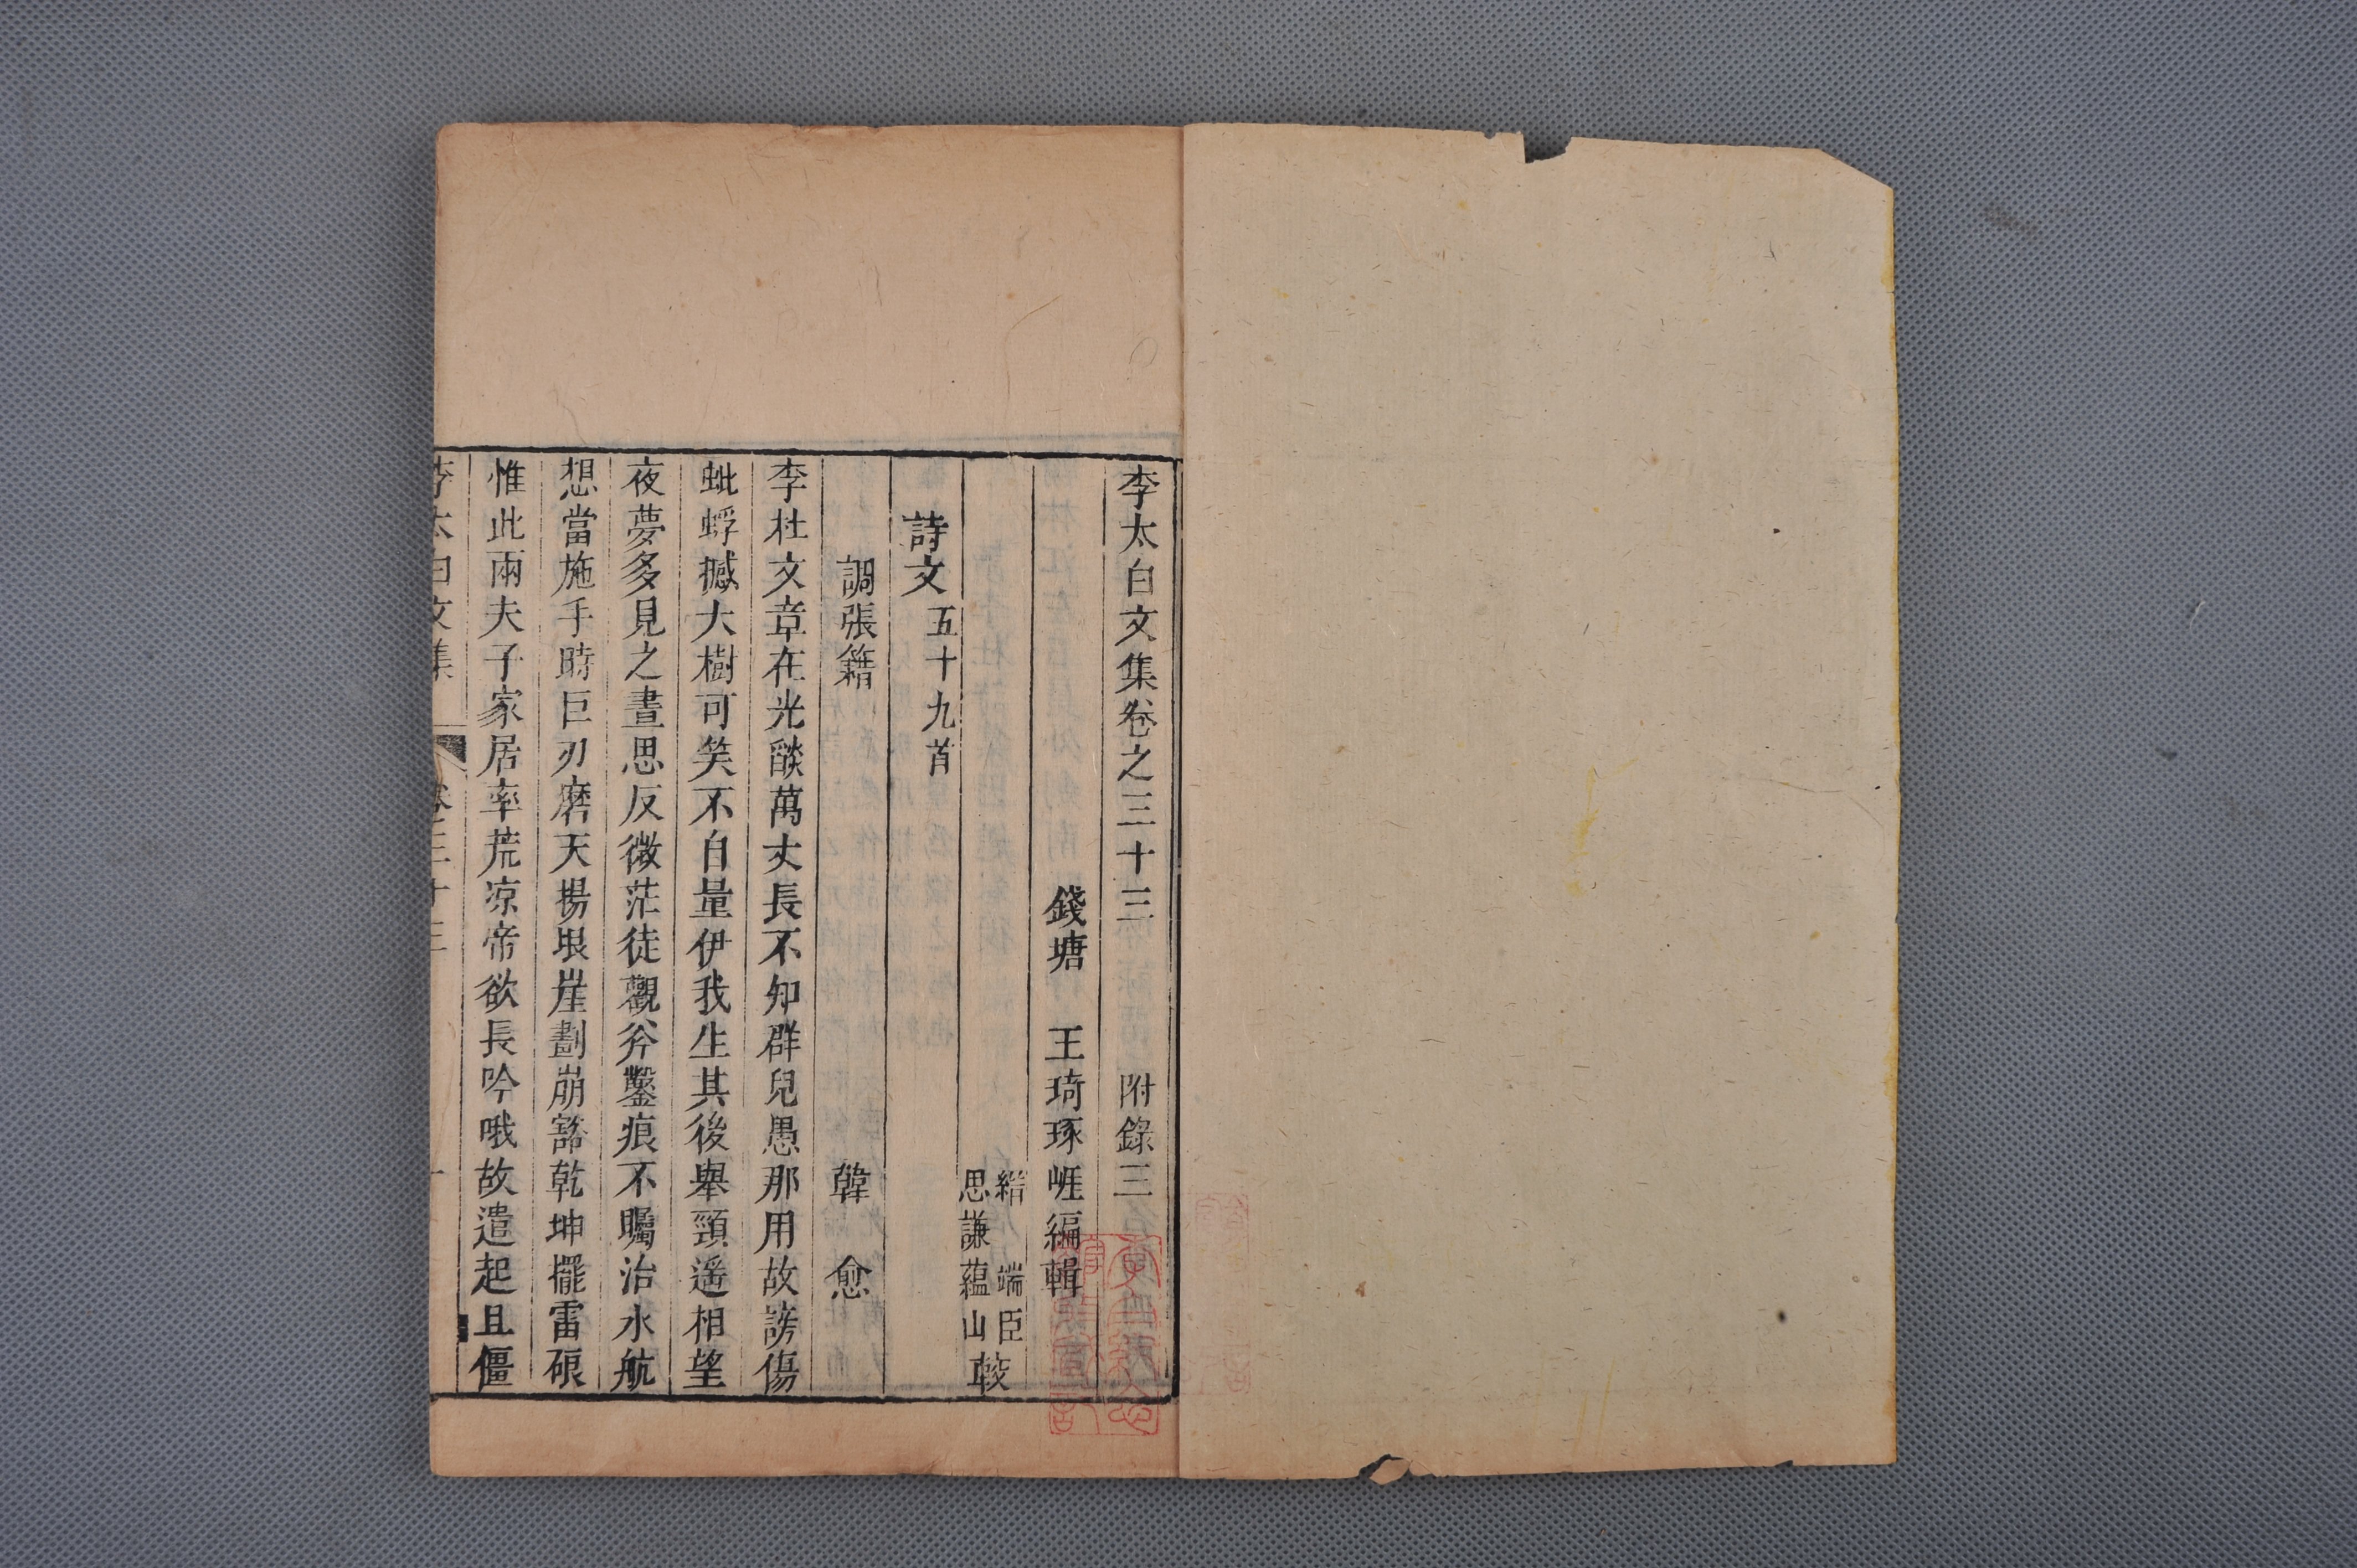 李太白文集卷之三十三　附錄三
錢塘　王琦琢崕編輯
縉　端臣
思謙蘊山較
詩文五十九首
調張籍　韓　愈
李杜文章在光燄萬丈長不知群兒愚那用故謗傷
蚍蜉撼大樹可笑不自量伊我生其後舉頸遥相望
夜夢多見之晝思反微茫徒觀斧鑿痕不矚治水航
想當施手時巨刃磨天揚垠崖劃崩豁乾坤擺雷硠
惟此兩夫子家居率荒凉帝欲長吟哦故遣起且僵
李太白文集　卷三十三　一